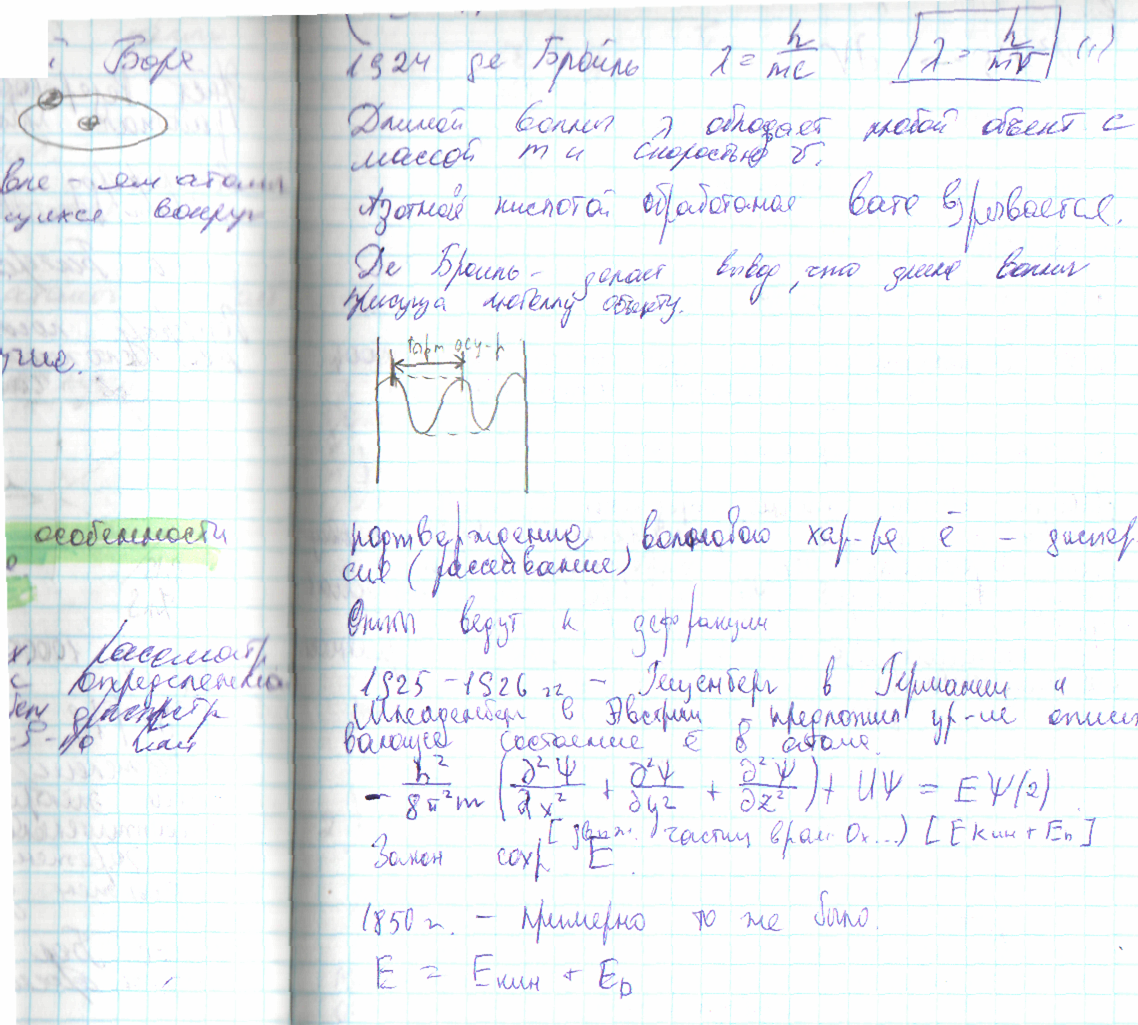 й Боря
вне - ем атома
щихся вокруг
чие.
особенности
о
х. рассматр
с определенной
1924 де Бройль λ = h/mc λ = h/mv (1)
Длиной волны λ обладает любой объект с
массой m и скоростью v.
Азотной кислотой обработаная вате взрывается.
Де Броиль - делает вывод, что длина волны
присуща любому объекту.
подтверждение волнового хар-ра ē - диспер
сия (рассеивание)
Опыты ведут к дифракции
1925 - 1926 гг - Гейзенберг в Германии и
в Австрии предложил ур-ие описы
вающее состояние ē в атоме.
- h²/8π²m (∂²Ψ/∂x² + ∂²Ψ/∂y² + ∂²Ψ/∂z²) + UΨ = EΨ (2)
[движ. частиц врам Ox...) [Eкин + Eп]
Закон сохр E
1850 г. - примерно то же было.
E = Eкин + Ep